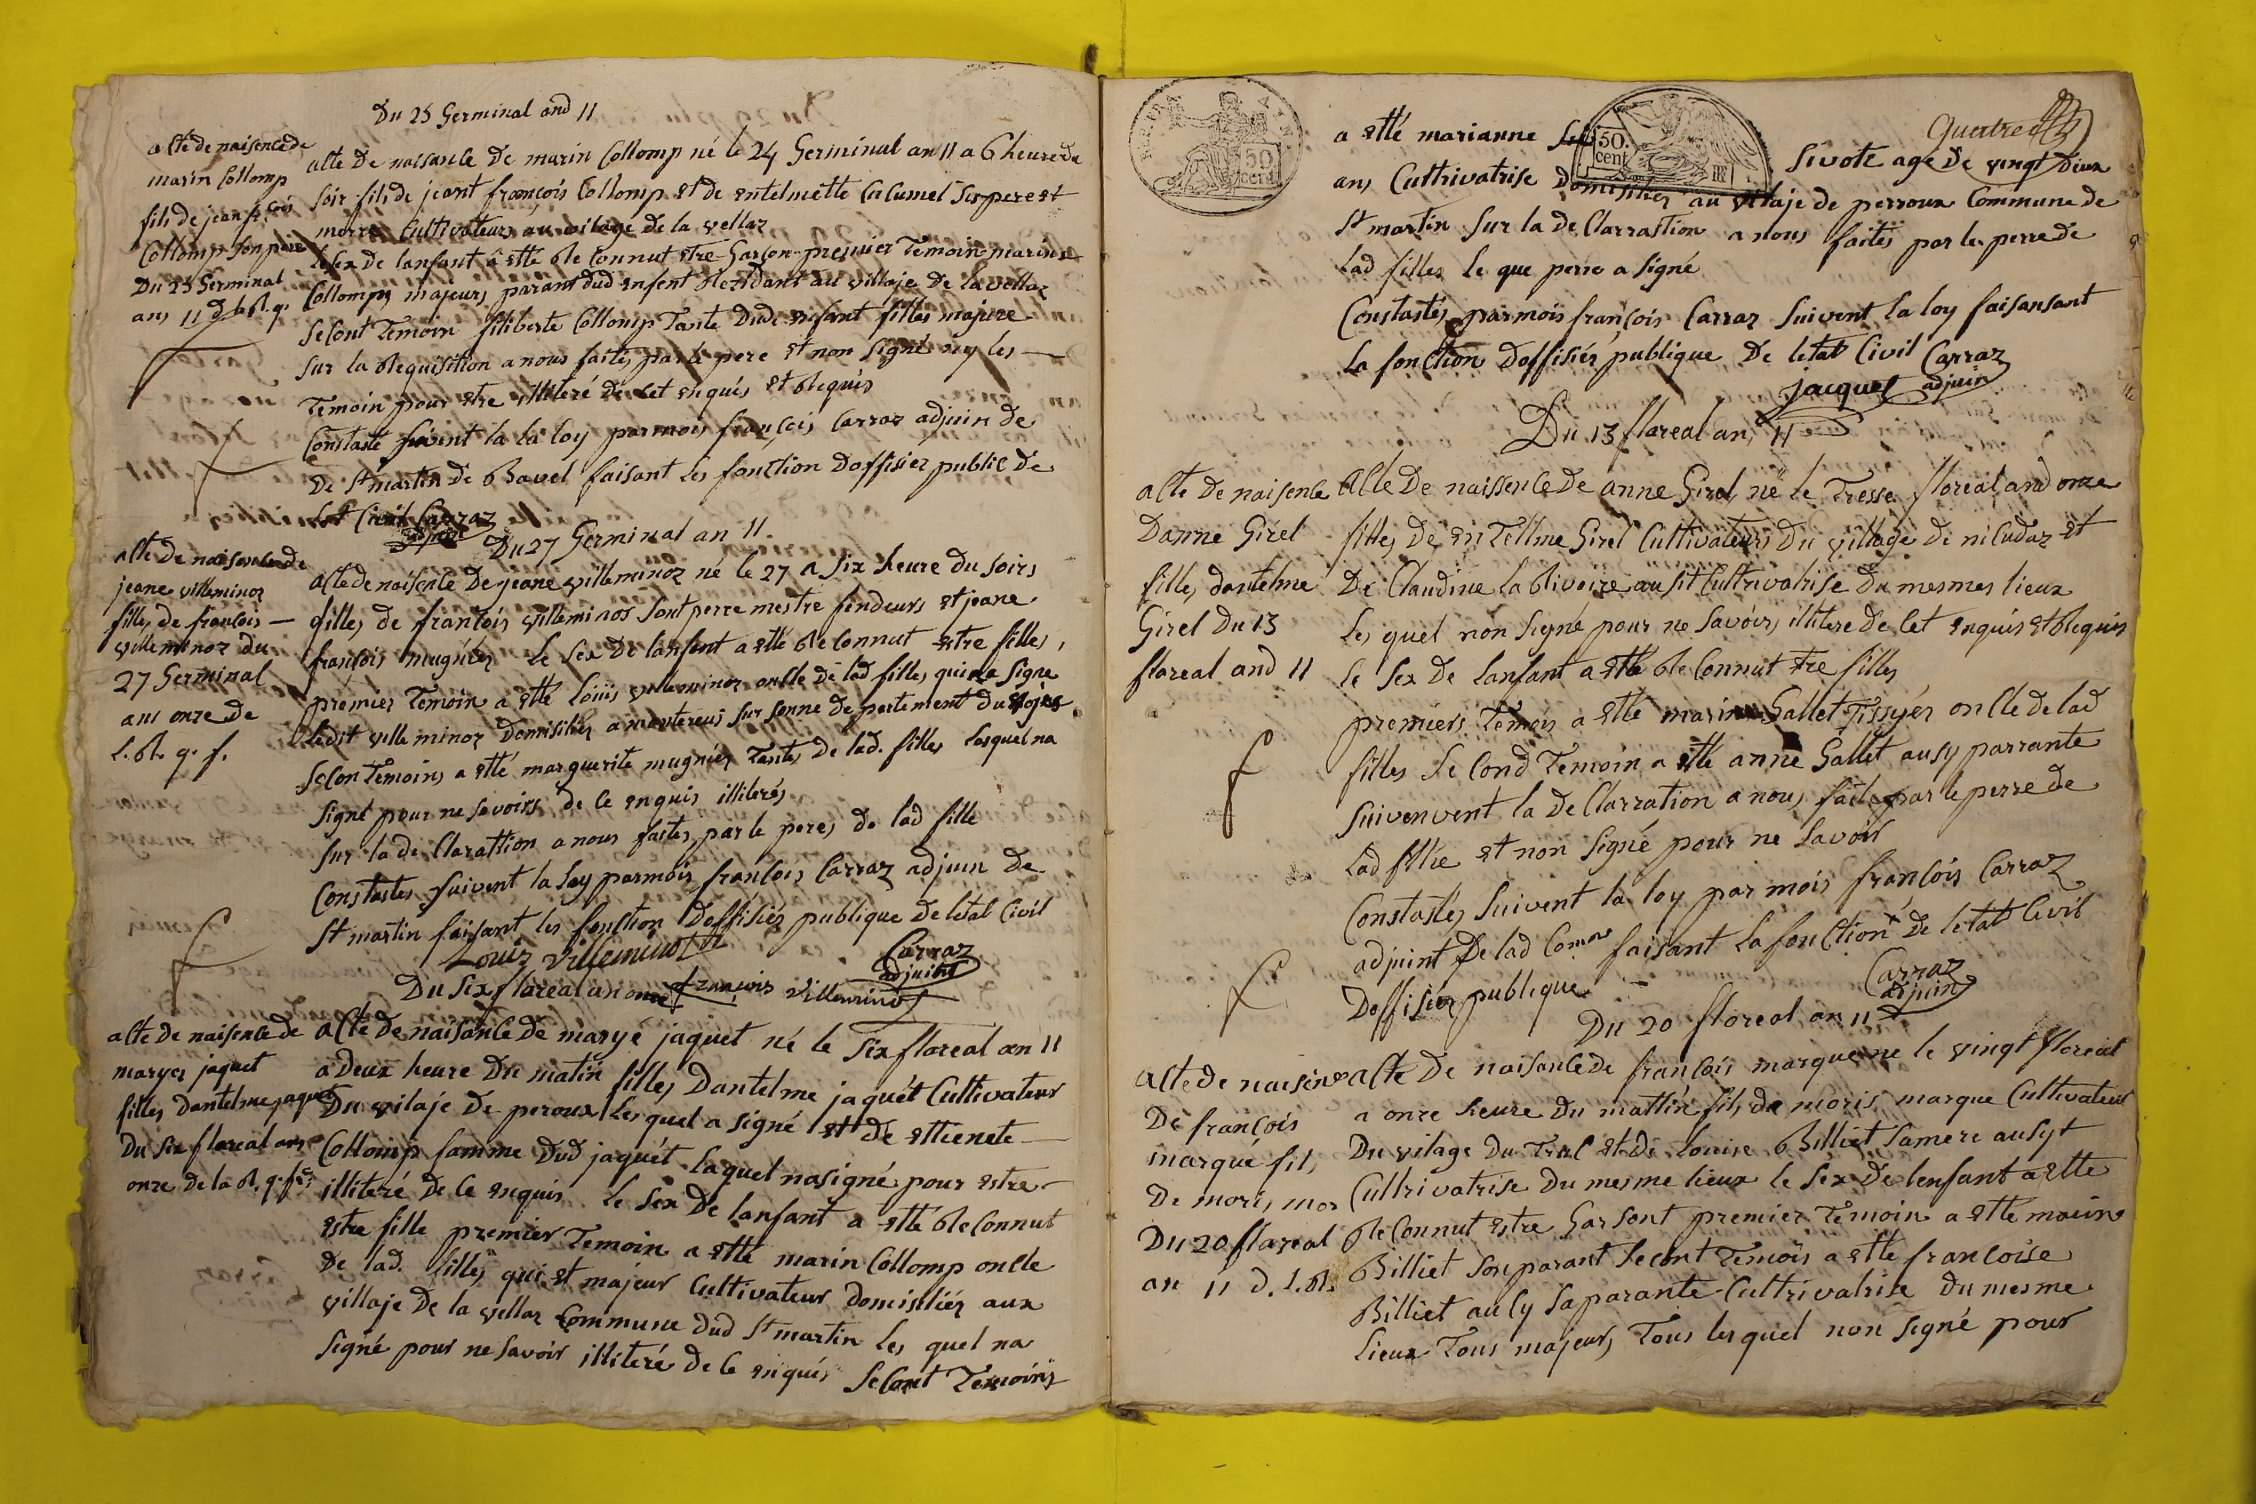 Du 25 Germinal and 11
acte de naisence de
marin Collomp
fils de jean fcois
Collomp son pere
Du 25 Germinal
ans 11 d. l. R. q.
acte de naissance de marin Collomp né le 24 Germinal an 11 a 6 heure du
soir fils de jeant françois Collomp et de entelmette Calumel ses pere et
merre Cultivateurs au vilage de la vellaz
le sex de lanfant a etté Reconnut etre Garson premier Temoin marin
Collomps majeurs parant dud enfent Rezidant au village de la vellaz
secont Temoin filiberte Collomp Tante Dud. enfant filles majure
sur la Requisition a nous faites par le pere et non signé ny les
Temoin pour etre illiteré de cet enquis et Requis
Constaté suivent la la loy parmois françois Carraz adjuin de
De St martin de Bavel faisant les fonction Doffisier public de
let Civil Carraz
adjuin
Du 27 Germinal an 11
acte de naisance de
jeane villeminoz
filles de francois
villeminoz du
27 Germinal
ans onze de
l. R. q. f.
acte de naisence De jeane villeminoz né le 27 a six heure du soirs
filles de francois villeminos sont perre mestre fendeurs et jeane
françois mugniéz le sex De lanfant a etté Reconnut estre filles,
premier Temoin a etté loiiis villeminoz oncle de lad filles qui a signe
ledit villeminoz Domisiliéz a montereus sur sonne departement du
secon Temoins a etté marguerite mugniéz Tante De lad. filles lasquel na
signé pour ne savoirs de ce enquis illiterés
sur la de Clarattion a nous faites par le peres de lad fille
Constates suivent la Loy parmois françois Carraz adjuin de
St martin faisant les fonction Doffisiés publique de létat Civil
Louis villeminot
Carraz
adjuint
Du six flareal an onze françois villeminot
acte de naisence de
maryes jaquet
filles dantelme jaquet
Du six floreal ans
onze de la R. q. fse
acte de naisance de maryé jaquet né le six floreal an 11
a Deux heure Du matin filles Dantelme jaquét Cultivateur
Du vilaje De peroux les quel a signé et de ettienete
Collomp famme Dud jaquét laquel nasigné pour estre
illiteré de ce enquis le sex De lanfant a etté Reconnut
estre fille premier Temoin a etté marin Collomp oncle
De lad. filles qui et majeur Cultivateur domisiliéz aux
village De la vellaz Commune dud St martin les quel na
signé pour ne savoir illiteré de ce enquis secont Temoins
Quatre
a etté marianne sivote age de vingt Deux
ans Cultrivatrise Domisiliez au vilaje de perroux Commune de
St martin sur la de Clarrattion a nous faites par les perre de
Lad filles le que perre a signé
Constastés parmois françois Carraz suivent la loy faisansant
la fonction Doffisiés publique De letat Civil Carraz
jacquet adjuin
Du 13 flareal an 11
acte de naisence
Danne Girel
filles dantelme
Girel Du 13
floreal and 11
Acte De naissence de anne Girel né le Tresse floreal and onze
filles De en Tellme Girel Cultivateurs Du village de niCudaz et
De Claudine la Rivoire ausit Cultrivatrise Du mesmes lieux
Les quel non signé pour ne savoirs illitere de cet enquis et Requis
le sex De lanfant a etté Reconnut tre filles
premiers Temoin a etté marin Gallet Tissyér oncle de lad
filles second Temoin a etté anne Gallet ausy parrante
suivenvent la de Clarration a nous faites par le perre de
Lad fillie et non signé pour ne savoir
Constastés suivent la loy par mois françois Carraz
adjuint De lad Comne faisant la fonction de letat Civil
Doffisiez publique
Carraz
adjuin
Du 20 floreal an 11
acte de naisence
De françois
marque fils
De moris mar
Du 20 flareal
an 11 d. l. R.
acte De naisance de françois marque ne le vingt floreal
a onze heure Du mattin fils de moris marque Cultivateur
Du vilage Du Tral et de louise Billiet sa mere ausyt
Cultrivatrise Du mesme lieux le sex De lenfant a ette
Reconnut estre Garsont premier Temoin a ette marin
Billiet son parant secont Temois a ette francoise
Billiet aucy saparante Cultrivatrise du mesme
lieux Tous majeurs Tous lesquel non signé pour